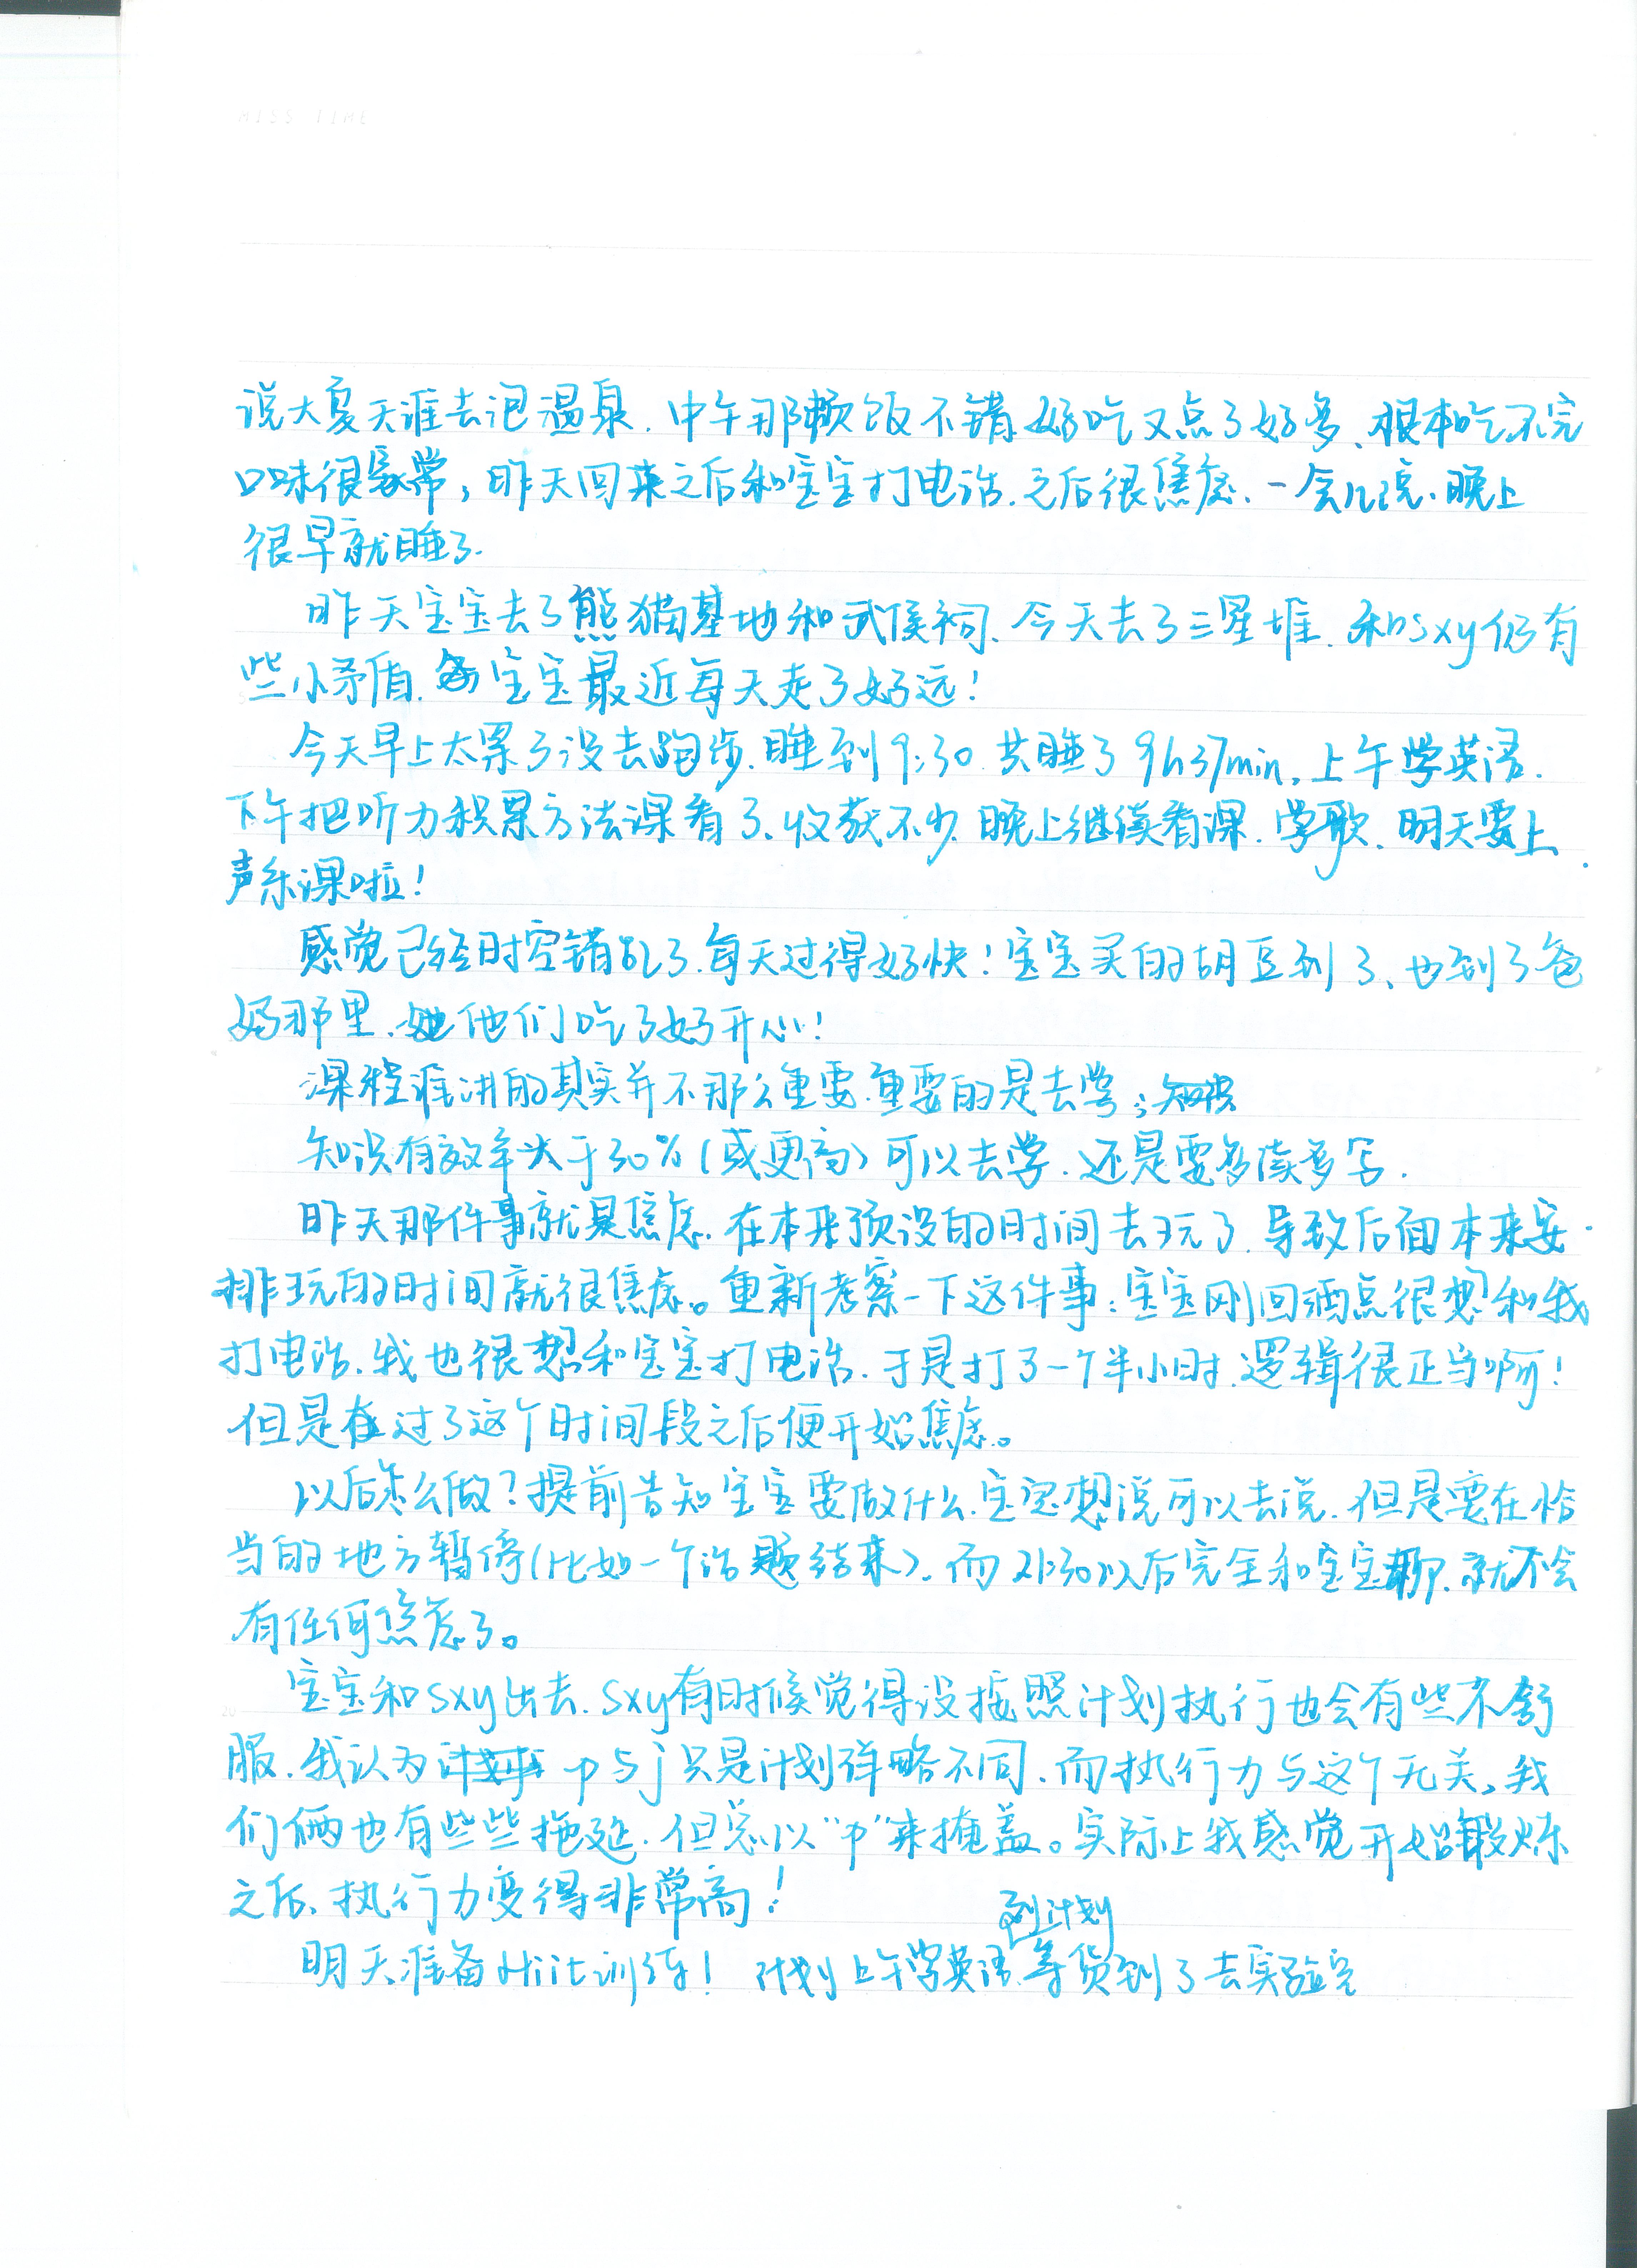 MISS TIME
说大夏天谁去泡温泉.中午那顿饭不错好吃又点了好多、根本吃不完
口味很家常,昨天回来之后和宝宝打电话.之后很焦虑、一会儿玩.晚上
很早就睡了.
昨天宝宝去了熊猫基地和武侯祠、今天去了三星堆.和sxy仍有
些小矛盾.宝宝最近每天走了好远!
今天早上太累了没去跑步.睡到9:30.共睡了9h37min.上午学英语.
下午把听力积累方法课看了、收获不少.晚上继续看课.学歌.明天要上
声乐课啦!
感觉已经时空错乱了.每天过得好快!宝宝买的胡豆到了、也到了爸
妈那里.他们吃了好开心!
课程谁讲的其实并不那么重要.重要的是去学;
知识有效率大于30%(或更高)可以去学.还是要多读多写.
昨天那件事就是焦虑.在本来预设的时间去玩了.导致后面本来安
排玩的时间就很焦虑。重新考察一下这件事:宝宝刚回酒店很想和我
打电话.我也很想和宝宝打电话.于是打了一个半小时.逻辑很正当啊!
但是在过了这个时间段之后便开始焦虑。
以后怎么做?提前告知宝宝要做什么.宝宝想说可以去说.但是要在恰
当的地方暂停(比如一个话题结束).而21:30以后完全和宝宝聊.就不会
有任何焦虑了。
宝宝和sxy出去.sxy有时候觉得没按照计划执行也会有些不舒
服.我认为p与j只是计划详略不同.而执行力与这个无关。我
们俩也有些些拖延.但总以"p"来掩盖。实际上我感觉开始锻炼
之后、执行力变得非常高!
列计划
明天准备Hiit训练!计划上午学英语.等货到了去实验室